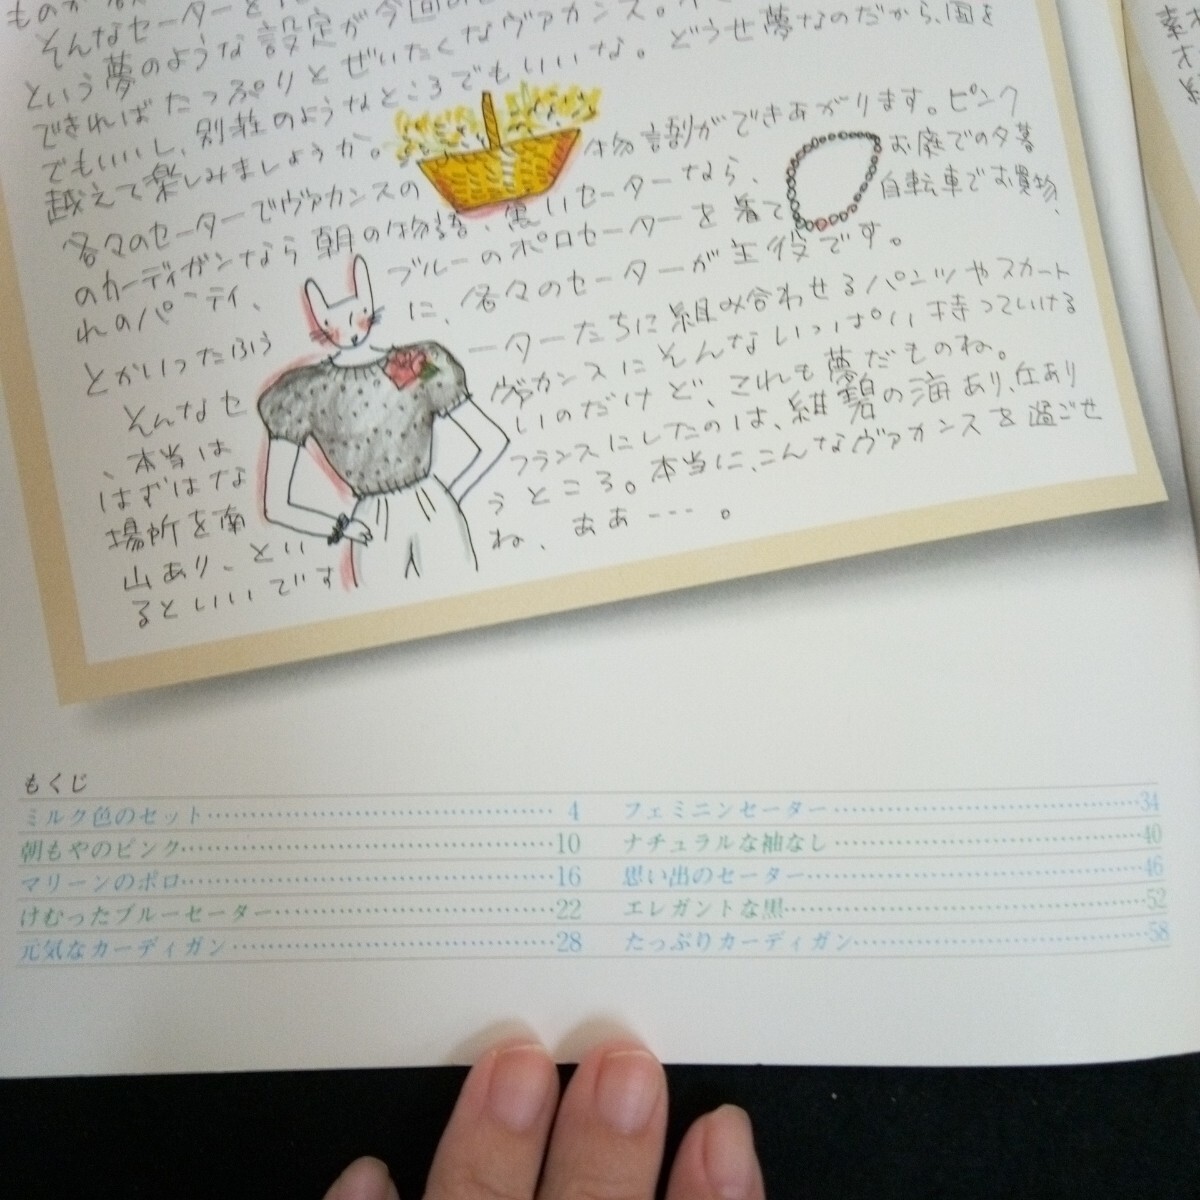 そんなセーターを
という夢のような設定が今回の
できればたっぷりとぜいたくなヴァカンス。
でもいいし、別荘のようなところでもいいな。どうせ夢なのだから、国を
越えて楽しみましょうか。
各々のセーターでヴァカンスの 物語割ができあがります。ピンク
のカーディガンなら朝の物語、黒いセーターなら、お庭での夕暮
れのパーティ、ブルーのポロセーターを着て自転車でお買物、
とかいったふうに、各々のセーターが主役です。
そんなセーターたちに組み合わせるパンツやスカート
、本当はヴァカンスにそんないっぱい持っていける
はずはないのだけど、これも夢だものね。
場所を南フランスにしたのは、紺碧の海あり、丘あり
山あり、というところ。本当に、こんなヴァカンスを過ごせ
るといいですね、ああ---。
もくじ
ミルク色のセット 4
朝もやのピンク 10
マリーンのポロ 16
けむったブルーセーター 22
元気なカーディガン 28
フェミニンセーター 34
ナチュラルな袖なし 40
思い出のセーター 46
エレガントな黒 52
たっぷりカーディガン 58